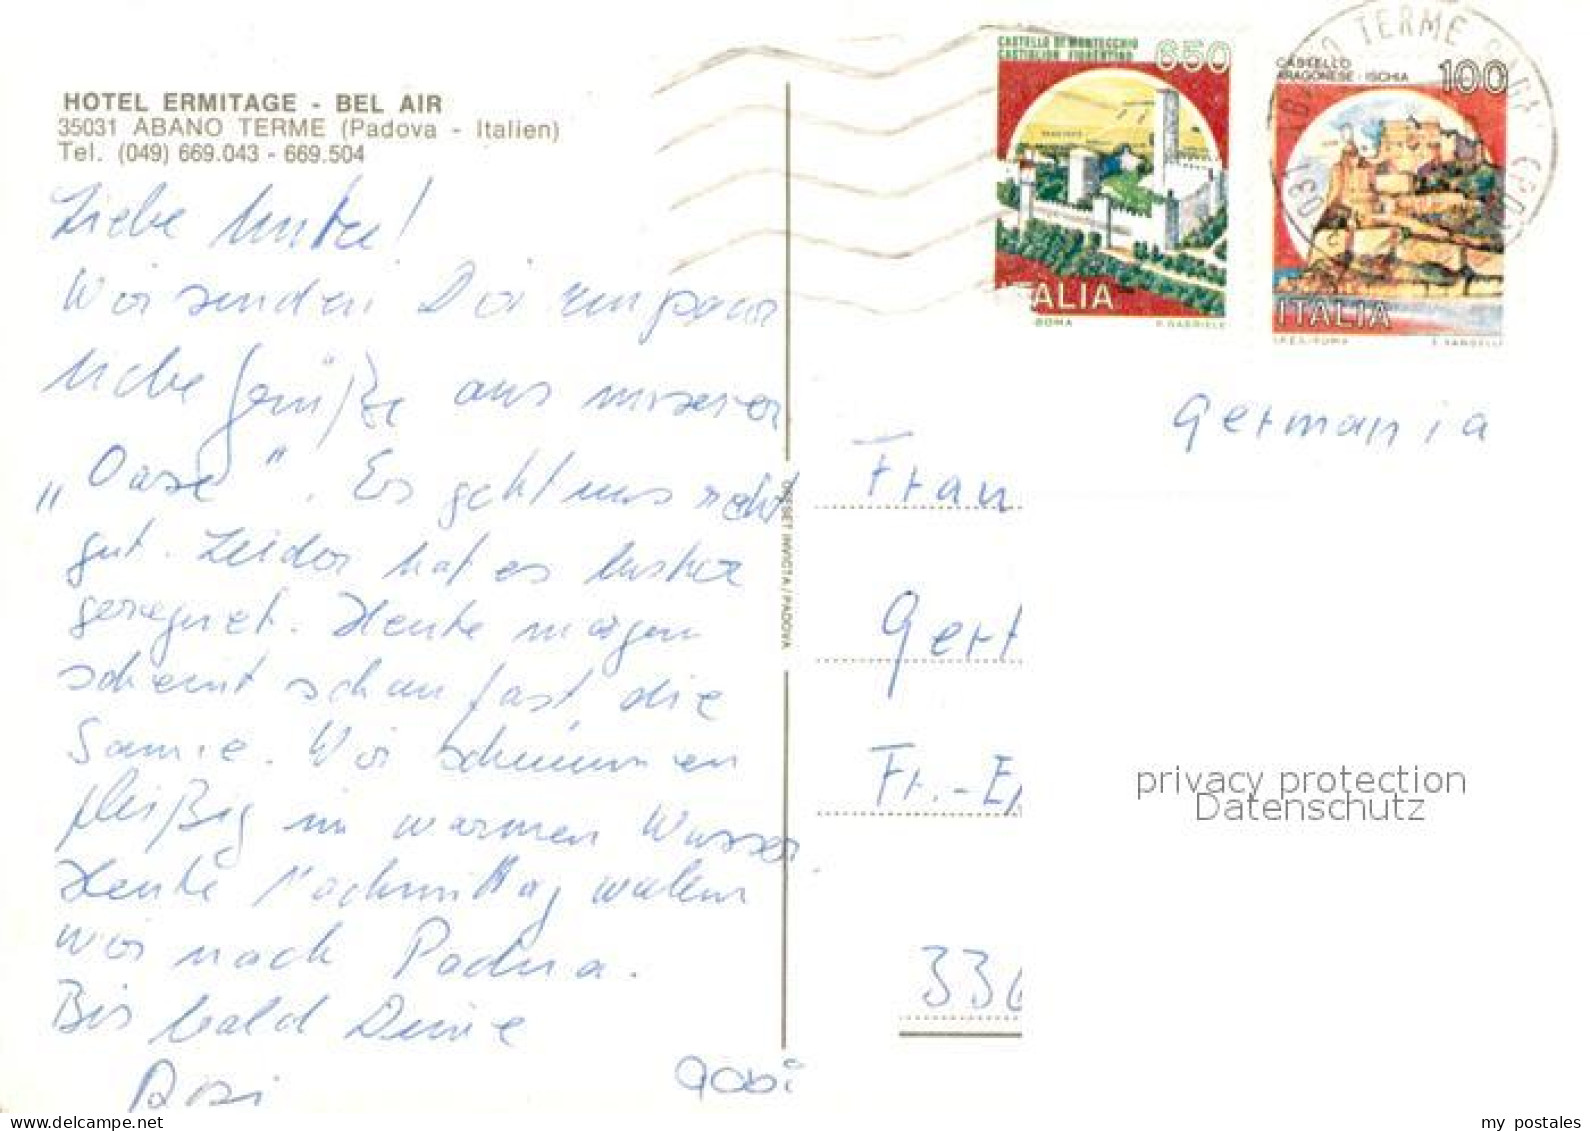 HOTEL ERMITAGE - BEL AIR
35031 ABANO TERME (Padova - Italien)
Tel. (049) 669.043 - 669.504
Liebe
Wir senden Dir ein paar
liebe Grüße aus unserer
„Oase". Es geht uns recht
gut. Leider hat es bisher
geregnet. Heute morgen
scheint schon fast die
Sonne. Wir schwimmen
fleißig im warmen Wasser.
Heute Nachmittag wollen
wir nach Padua.
Bis bald Deine
Rosi
Gabi
OFFSET INVICTA / PADOVA
CASTELLO DI MONTECCHIO
CASTIGLION FIORENTINO
650
ITALIA
ROMA
CASTELLO
ARAGONESE - ISCHIA
100
ITALIA
I.P.Z.S. - ROMA
ABANO TERME
Germania
Frau
Gert
Fr.-E
33
privacy protection
Datenschutz
my postales